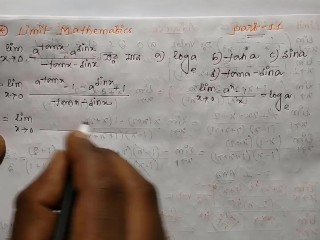 Limit Mathematics part-11
lim x→0 (a^tanx - a^sinx)/(tanx - sinx) এর মান a) log_e a b) tan a c) sin a
d) tanx - sinx
= lim x→0 (a^tanx - 1 - a^sinx + 1)/(tanx - sinx) lim x→0 (a^x - 1)/x = log_e a
= lim x→0